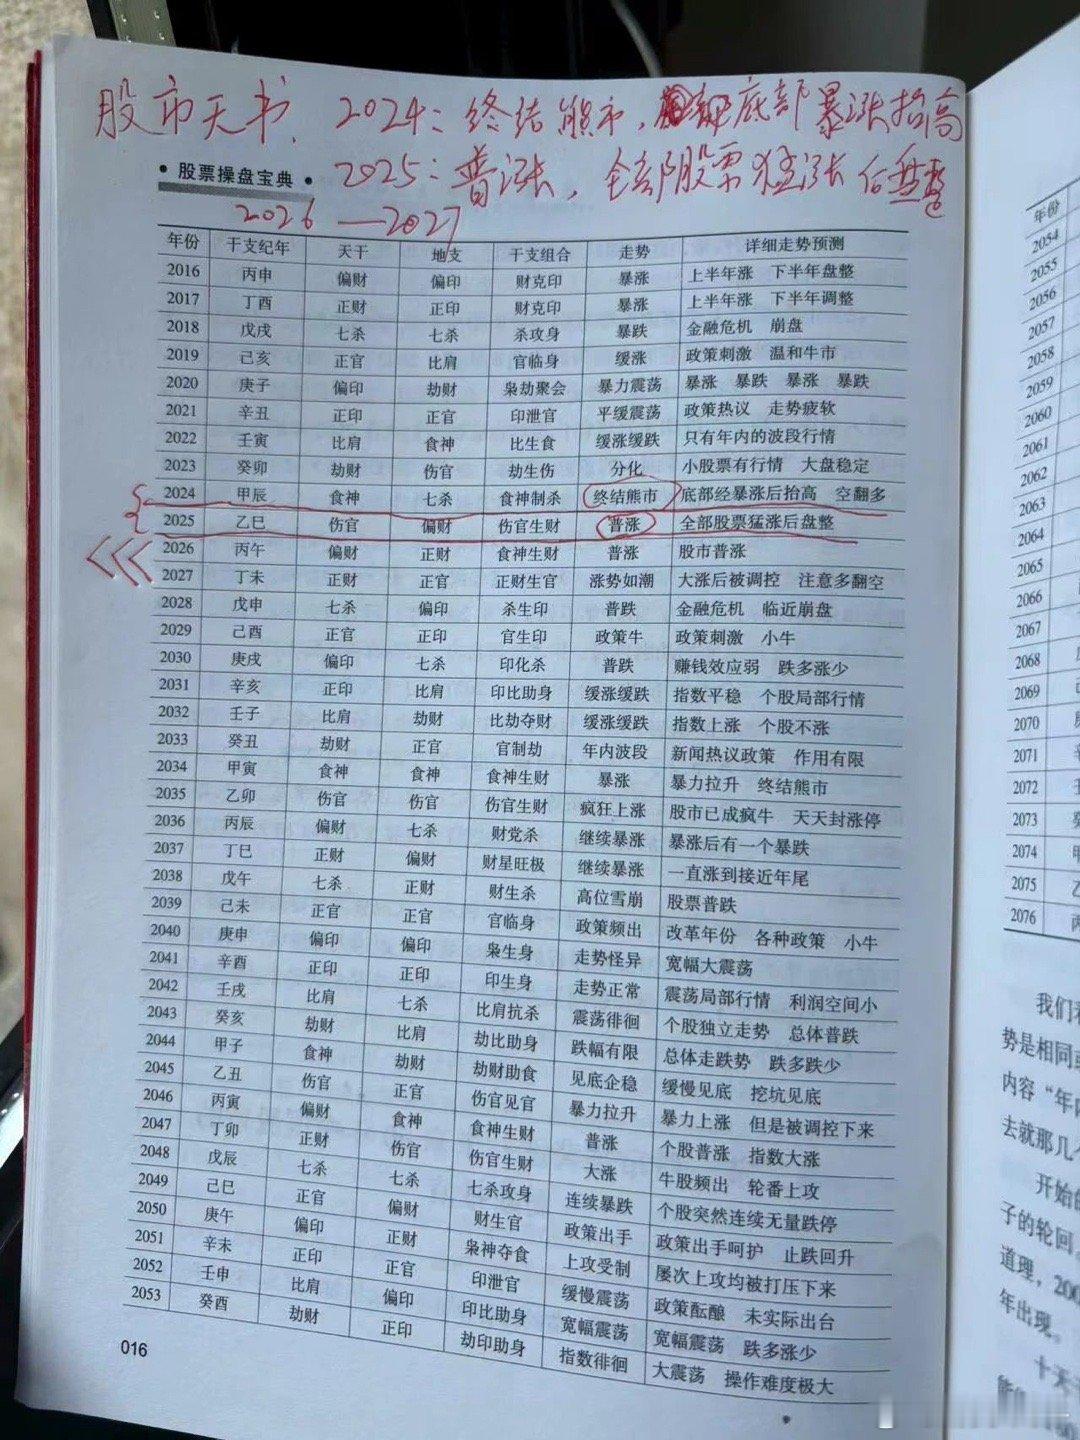 股市天书、2024：终结熊市，底部暴涨抬高
2025：普涨，全部股票猛涨后盘整
2026—2027
• 股票操盘宝典 •
年份 干支纪年 天干 地支 干支组合 走势 详细走势预测
2016 丙申 偏财 偏印 财克印 暴涨 上半年涨 下半年盘整
2017 丁酉 正财 正印 财克印 暴涨 上半年涨 下半年调整
2018 戊戌 七杀 七杀 杀攻身 暴跌 金融危机 崩盘
2019 己亥 正官 比肩 官临身 缓涨 政策刺激 温和牛市
2020 庚子 偏印 劫财 枭劫聚会 暴力震荡 暴涨 暴跌 暴涨 暴跌
2021 辛丑 正印 正官 印泄官 平缓震荡 政策热议 走势疲软
2022 壬寅 比肩 食神 比生食 缓涨缓跌 只有年内的波段行情
2023 癸卯 劫财 伤官 劫生伤 分化 小股票有行情 大盘稳定
2024 甲辰 食神 七杀 食神制杀 终结熊市 底部经暴涨后抬高 空翻多
2025 乙巳 伤官 偏财 伤官生财 普涨 全部股票猛涨后盘整
2026 丙午 偏财 正财 食神生财 普涨 股市普涨
2027 丁未 正财 正官 正财生官 涨势如潮 大涨后被调控 注意多翻空
2028 戊申 七杀 偏印 杀生印 普跌 金融危机 临近崩盘
2029 己酉 正官 正印 官生印 政策牛 政策刺激 小牛
2030 庚戌 偏印 七杀 印化杀 普跌 赚钱效应弱 跌多涨少
2031 辛亥 正印 比肩 印比助身 缓涨缓跌 指数平稳 个股局部行情
2032 壬子 比肩 劫财 比劫夺财 缓涨缓跌 指数上涨 个股不涨
2033 癸丑 劫财 正官 官制劫 年内波段 新闻热议政策 作用有限
2034 甲寅 食神 食神 食神生财 暴涨 暴力拉升 终结熊市
2035 乙卯 伤官 伤官 伤官生财 疯狂上涨 股市已成疯牛 天天封涨停
2036 丙辰 偏财 七杀 财党杀 继续暴涨 暴涨后有一个暴跌
2037 丁巳 正财 偏财 财星旺极 继续暴涨 一直涨到接近年尾
2038 戊午 七杀 正财 财生杀 高位雪崩 股票普跌
2039 己未 正官 正官 官临身 政策频出 改革年份 各种政策 小牛
2040 庚申 偏印 偏印 枭生身 走势怪异 宽幅大震荡
2041 辛酉 正印 正印 印生身 走势正常 震荡局部行情 利润空间小
2042 壬戌 比肩 七杀 比肩抗杀 震荡徘徊 个股独立走势 总体普跌
2043 癸亥 劫财 比肩 劫比助身 跌幅有限 总体走跌势 跌多跌少
2044 甲子 食神 劫财 劫财助食 见底企稳 缓慢见底 挖坑见底
2045 乙丑 伤官 正官 伤官见官 暴力拉升 暴力上涨 但是被调控下来
2046 丙寅 偏财 食神 食神生财 普涨 个股普涨 指数大涨
2047 丁卯 正财 伤官 伤官生财 大涨 牛股频出 轮番上攻
2048 戊辰 七杀 七杀 七杀攻身 连续暴跌 个股突然连续无量跌停
2049 己巳 正官 偏财 财生官 政策出手 政策出手呵护 止跌回升
2050 庚午 偏印 正财 枭神夺食 上攻受制 屡次上攻均被打压下来
2051 辛未 正印 正官 印泄官 缓慢震荡 政策酝酿 未实际出台
2052 壬申 比肩 偏印 印比助身 宽幅震荡 宽幅震荡 跌多涨少
2053 癸酉 劫财 正印 劫印助身 指数徘徊 大震荡 操作难度极大
016
年份
2054
2055
2056
2057
2058
2059
2060
2061
2062
2063
2064
2065
2066
2067
2068
2069
2070
2071
2072
2073
2074
2075
2076
我们
势是相同
内容“年
去就那几
开始
子的轮回
道理，200
年出现。
十天